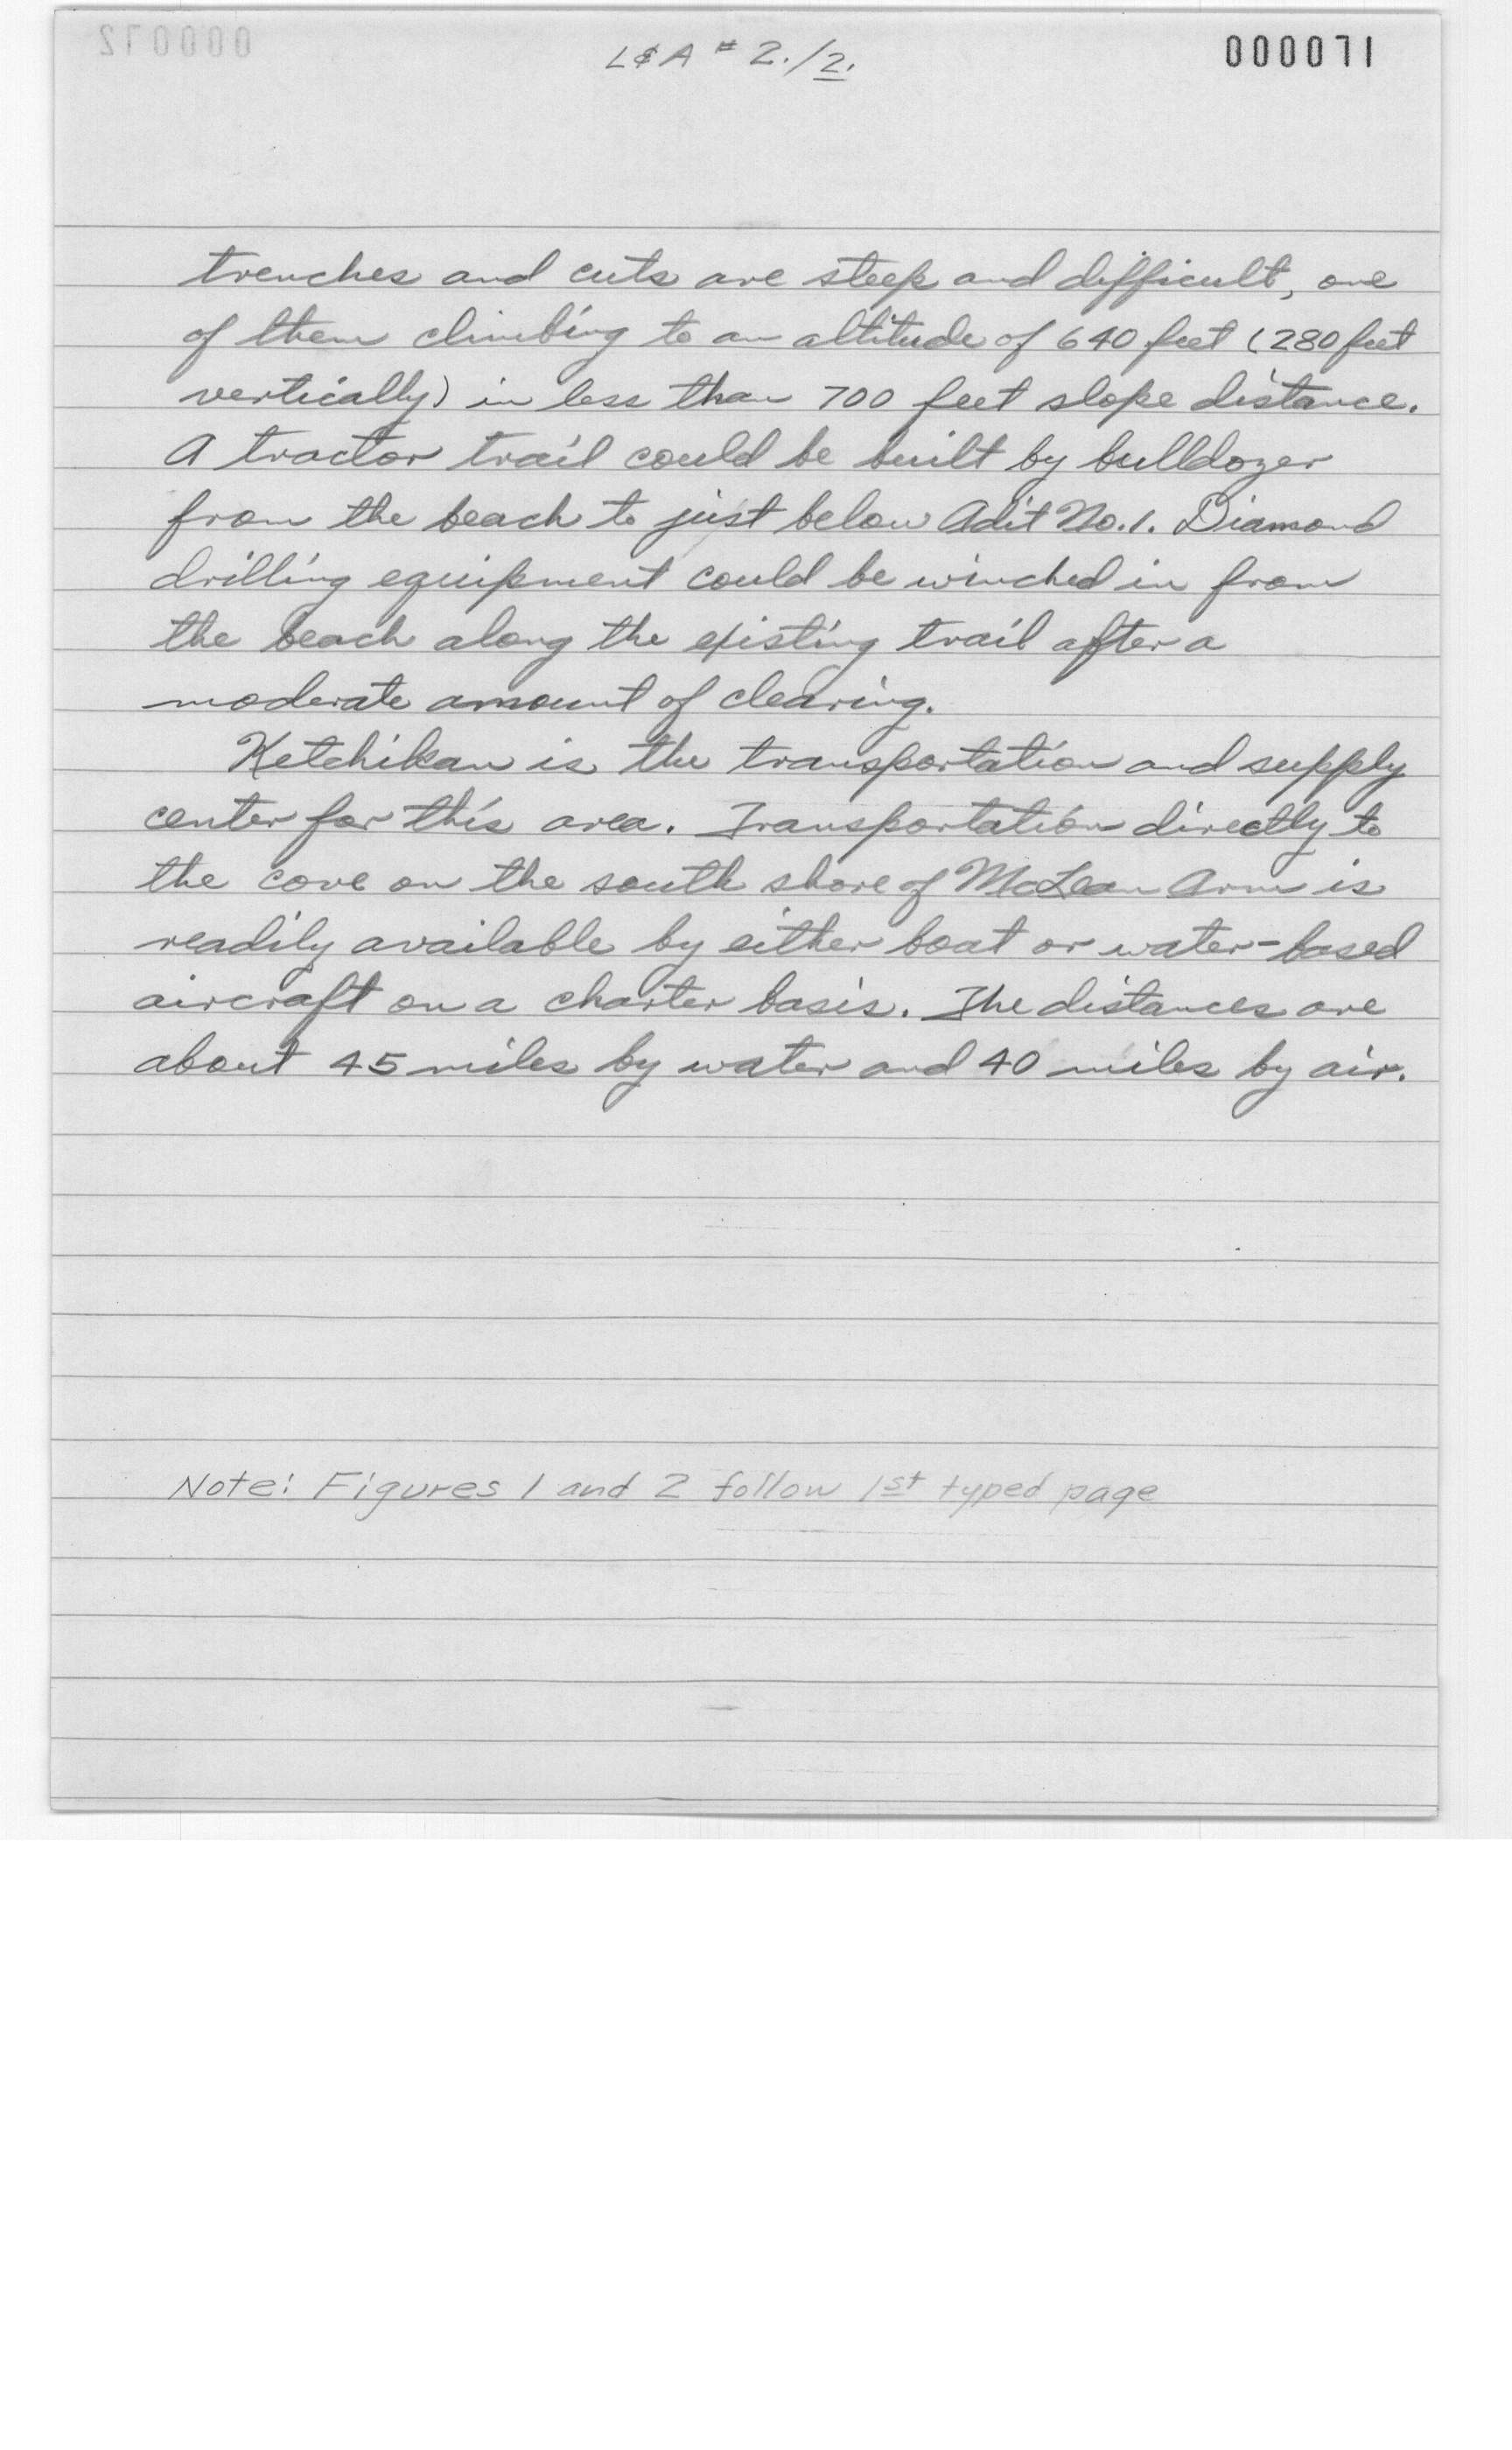 L&A # 2./2.
000071
000012
trenches and cuts are steep and difficult, one
of them climbing to an altitude of 640 feet (280 feet
vertically) in less than 700 feet slope distance.
A tractor trail could be built by bulldozer
from the beach to just below Adit No. 1. Diamond
drilling equipment could be winched in from
the beach along the existing trail after a
moderate amount of clearing.
Ketchikan is the transportation and supply
center for this area. Transportation directly to
the cove on the south shore of McLean Arm is
readily available by either boat or water-based
aircraft on a charter basis. The distances are
about 45 miles by water and 40 miles by air.
Note: Figures 1 and 2 follow 1st typed page